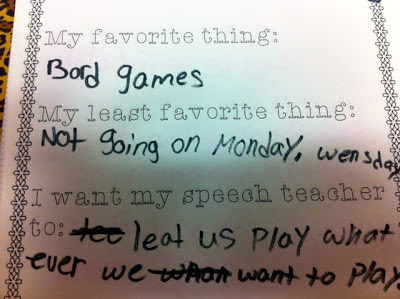 My favorite thing:
Bord games
My least favorite thing:
Not going on Monday, wensday
I want my speech teacher
to: leat us play what
ever we want to play.